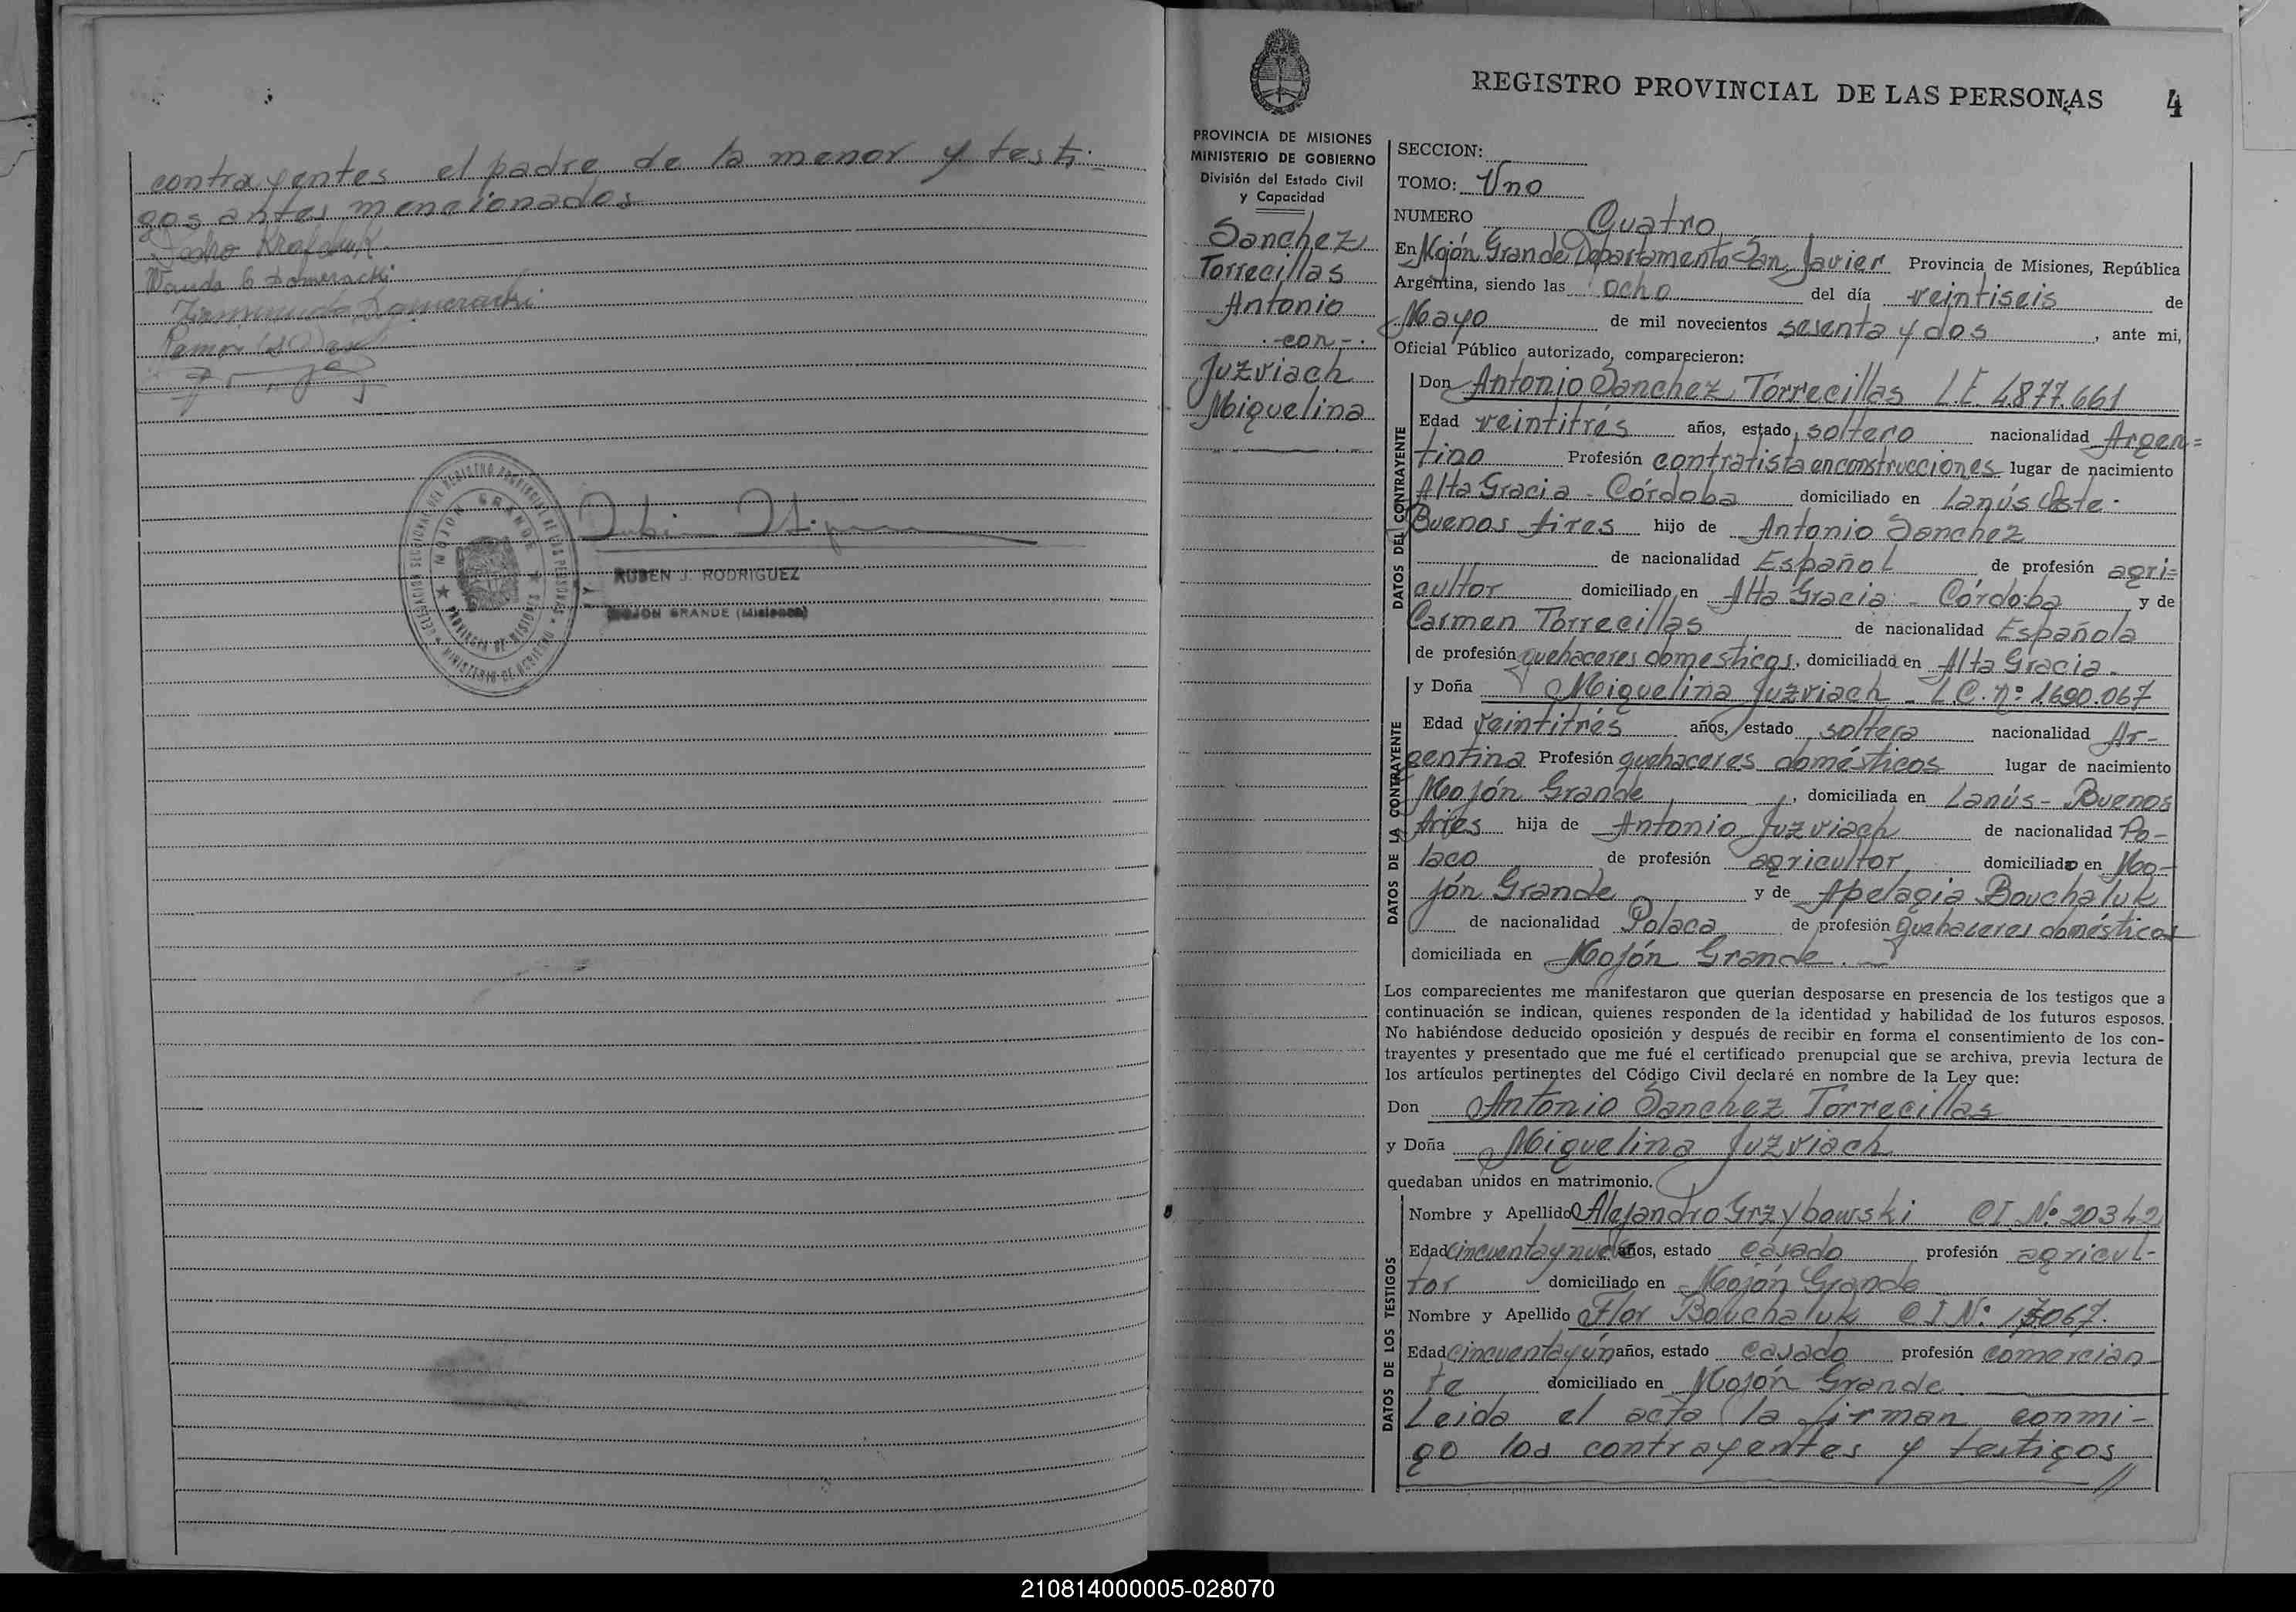 contrayentes el padre de la menor y testi-
gos antes mencionados
Pedro
Wanda G Domeracki
Domeracki
Ramon
DELEGACION SECCIONAL DEL REGISTRO PROVINCIAL DE LAS PERSONAS
MOJON GRANDE
PROVINCIA DE MISIONES
MINISTERIO DE GOBIERNO
RUBEN J. RODRIGUEZ
MOJON GRANDE (Misiones)
REGISTRO PROVINCIAL DE LAS PERSONAS 4
PROVINCIA DE MISIONES
MINISTERIO DE GOBIERNO
División del Estado Civil
y Capacidad
Sanchez
Torrecillas
Antonio
-con-
Juzviach
Miguelina
SECCION:
TOMO: Uno
NUMERO Cuatro
En Mojón Grande, Departamento San Javier Provincia de Misiones, República
Argentina, siendo las ocho del día veintiseis de
Mayo de mil novecientos sesenta y dos, ante mi,
Oficial Público autorizado, comparecieron:
DATOS DEL CONTRAYENTE
Don Antonio Sanchez Torrecillas L.E. 4.877.661
Edad veintitrés años, estado soltero nacionalidad Argen=
tino Profesión contratista en construcciones lugar de nacimiento
Alta Gracia - Córdoba domiciliado en Lanús Oste-
Buenos Aires hijo de Antonio Sanchez
de nacionalidad Español de profesión agri=
cultor domiciliado en Alta Gracia - Córdoba y de
Carmen Torrecillas de nacionalidad Española
de profesión quehaceres domesticos, domiciliada en Alta Gracia-
DATOS DE LA CONTRAYENTE
y Doña Miguelina Juzviach - L.C. nº 1.690.067
Edad veintitrés años, estado soltera nacionalidad Ar-
gentina Profesión quehaceres domésticos lugar de nacimiento
Mojón Grande, domiciliada en Lanús - Buenos
Aries hija de Antonio Juzviach de nacionalidad Po-
laco de profesión agricultor domiciliado en Mo-
jón Grande y de Apelagia Bouchaluk
de nacionalidad Polaca de profesión quehaceres domésticos
domiciliada en Mojón Grande.-
Los comparecientes me manifestaron que querían desposarse en presencia de los testigos que a
continuación se indican, quienes responden de la identidad y habilidad de los futuros esposos.
No habiéndose deducido oposición y después de recibir en forma el consentimiento de los con-
trayentes y presentado que me fué el certificado prenupcial que se archiva, previa lectura de
los artículos pertinentes del Código Civil declaré en nombre de la Ley que:
Don Antonio Sanchez Torrecillas
y Doña Miguelina Juzviach
quedaban unidos en matrimonio.
DATOS DE LOS TESTIGOS
Nombre y Apellido Alejandro Grzybowski CI. Nº 20342
Edad cincuenta y nueve años, estado casado profesión agricul-
tor domiciliado en Mojón Grande
Nombre y Apellido Flor Bouchaluk C.I.Nº
Edad cincuenta y ún años, estado casado profesión comercian-
te domiciliado en Mojón Grande.
Leida el acta la firman conmi-
go los contrayentes y testigos
210814000005-028070